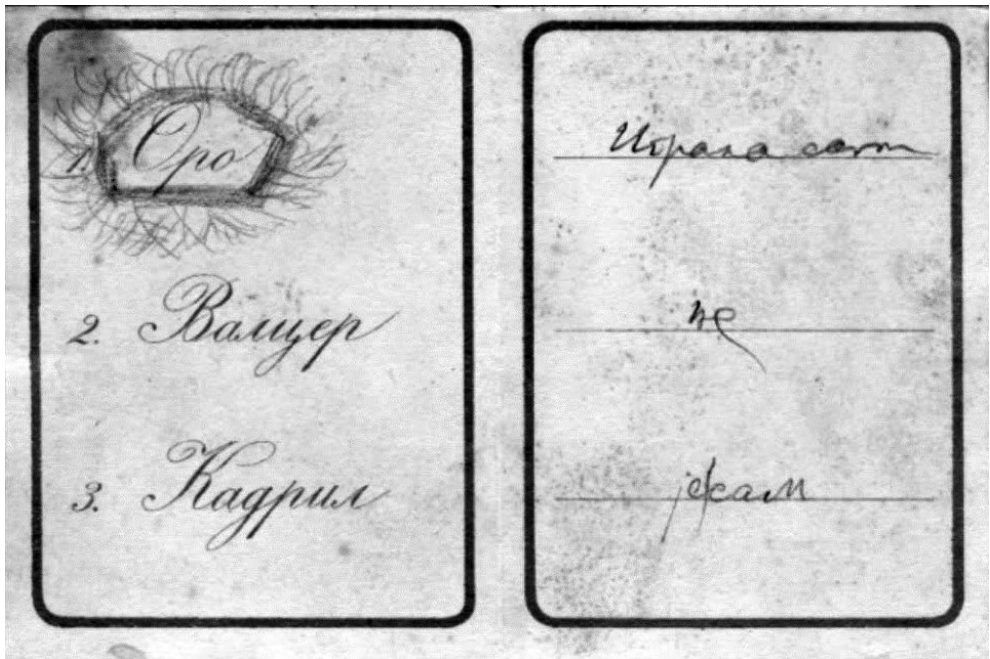 1. Оро
2. Валцер
3. Кадрил
Играла сам
не